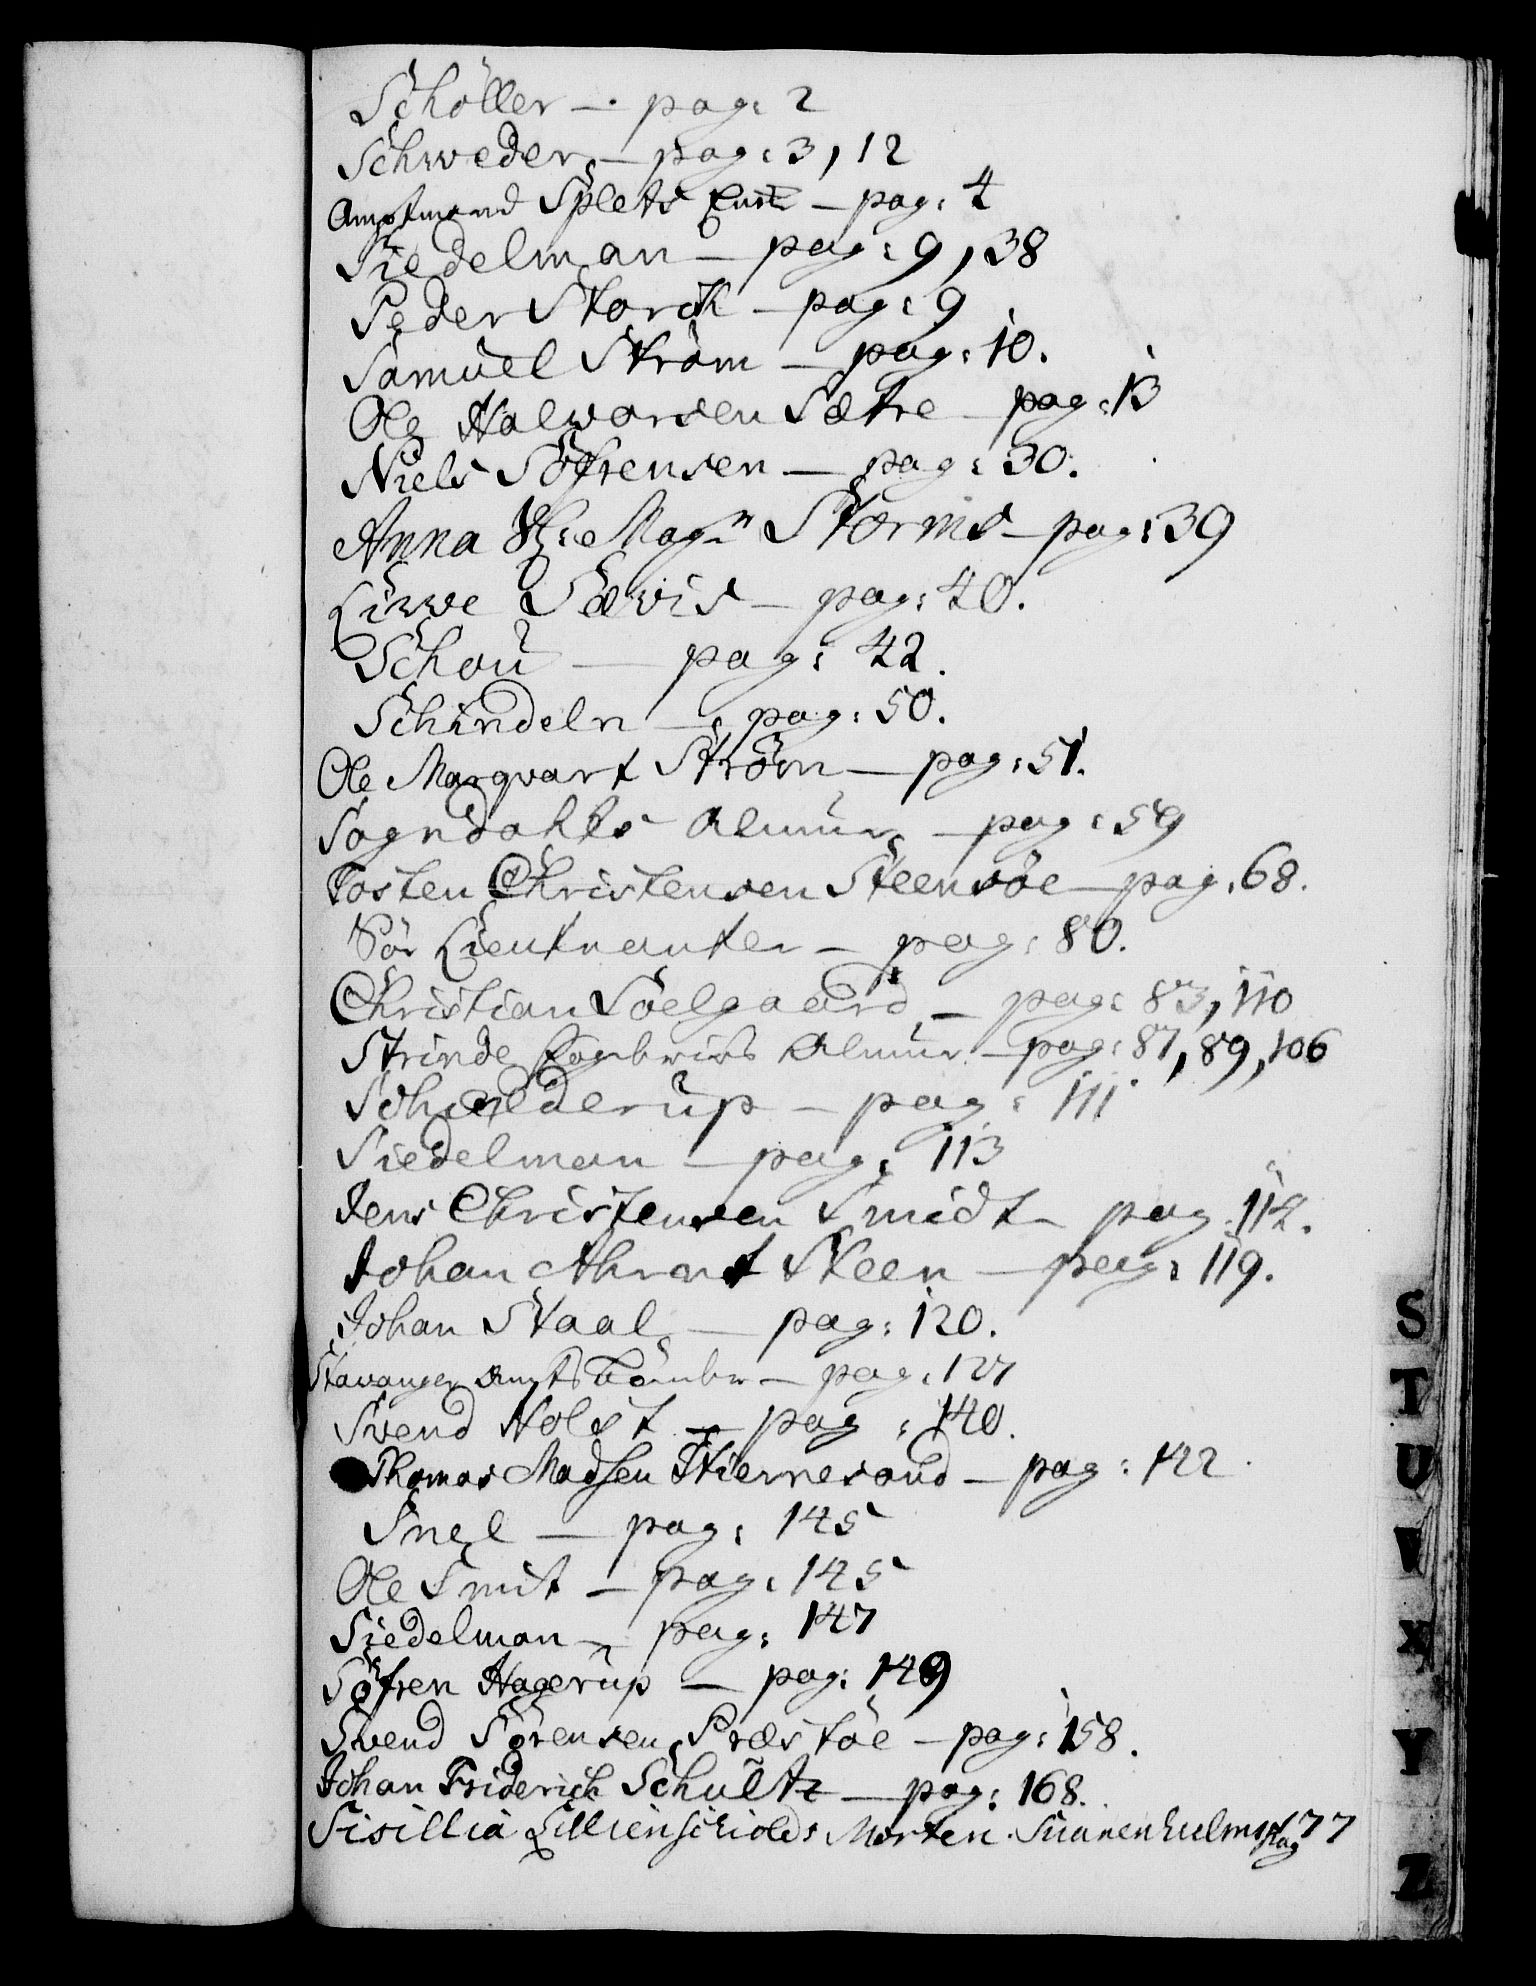 Schöller — pag: 2
Schweder — pag: 3, 12
Amptmand Splets — pag: 4
Siedelman — pag: 9, 38
Peder Storck — pag: 9
Samuel Ström — pag: 10.
Ole Halvorsen Sætre — pag: 13
Niels Söfrensen — pag: 30.
Anna Sl: Mag:r Storms — pag: 39
Sævis — pag: 40.
Schou — pag: 42.
Schindeln — pag: 50.
Ole Marqvart Ström — pag: 51.
Sogndahls Almue — pag: 59
Tosten Christensen Steensöe — pag: 68.
Söe Lieutnanter — pag: 80.
Christian Soelgaard — pag: 83, 110
Strinde Almue — pag: 87, 89, 106
Schielderup — pag: 111
Siedelman — pag: 113
Jens Christensen Smidt — pag: 114.
Johan Ahrnt Steen — pag: 119.
Johan Staal — pag: 120.
Stavanger Ampts — pag: 127
Svend Holst — pag: 140.
Thomas Madsen Stiernesand — pag: 142
Snel — pag: 145
Ole Smit — pag: 145
Siedelman — pag: 147
Söfren Hagerup — pag: 149
Svend Sörensen Præstöe — pag: 158.
Johan Friderich Schultz — pag: 168.
Sisillia Lillienschiolds Morten pag 177
S
T
U
V
X
Y
Z